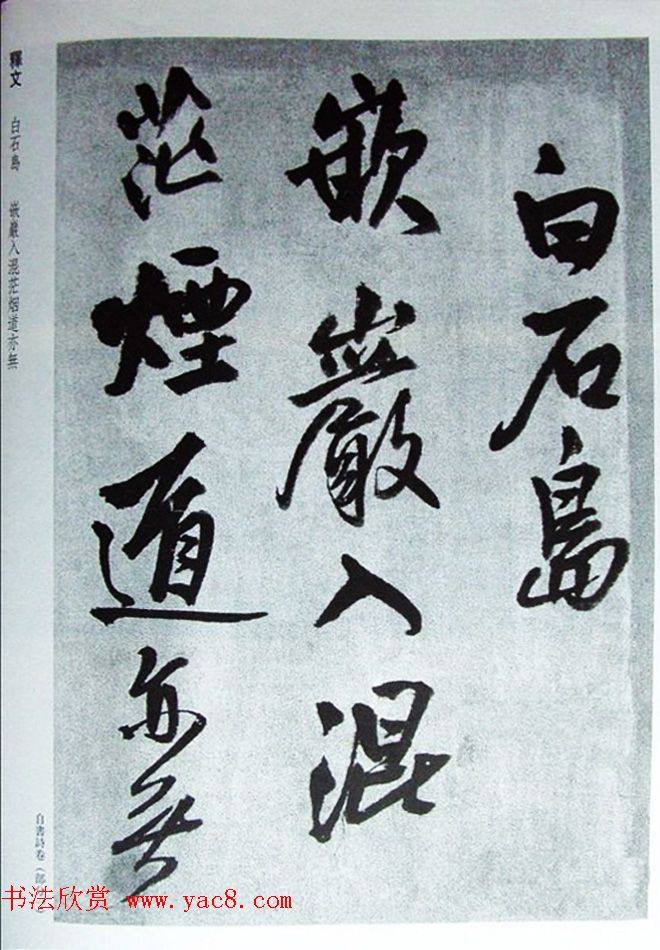 白石島
嵌巖入混
茫煙道亦無
釋文 白石島 嵌巖入混茫烟道亦無
自書詩卷
书法欣赏 www.yac8.com